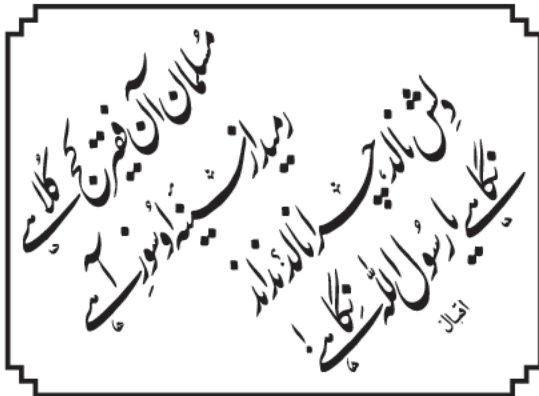 مُسلمان آں فقیرِ کج کُلاہے
رمید از سینۂ اُو سُوزِ آہے
دِلش نالد، چرا نالد؟ نداند
نگاہے یا رسُول اللہؐ نگاہے!
اقبال